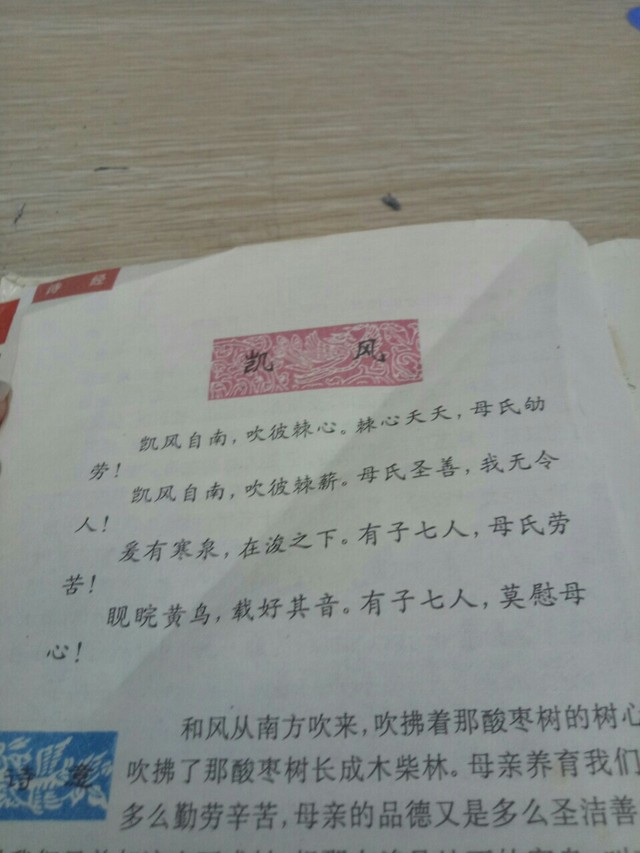 诗 经
凯 风
凯风自南，吹彼棘心。棘心夭夭，母氏劬
劳！
凯风自南，吹彼棘薪。母氏圣善，我无令
人！
爰有寒泉，在浚之下。有子七人，母氏劳
苦！
睍睆黄鸟，载好其音。有子七人，莫慰母
心！
和风从南方吹来，吹拂着那酸枣树的树心
诗 意
吹拂了那酸枣树长成木柴林。母亲养育我们
多么勤劳辛苦，母亲的品德又是多么圣洁善